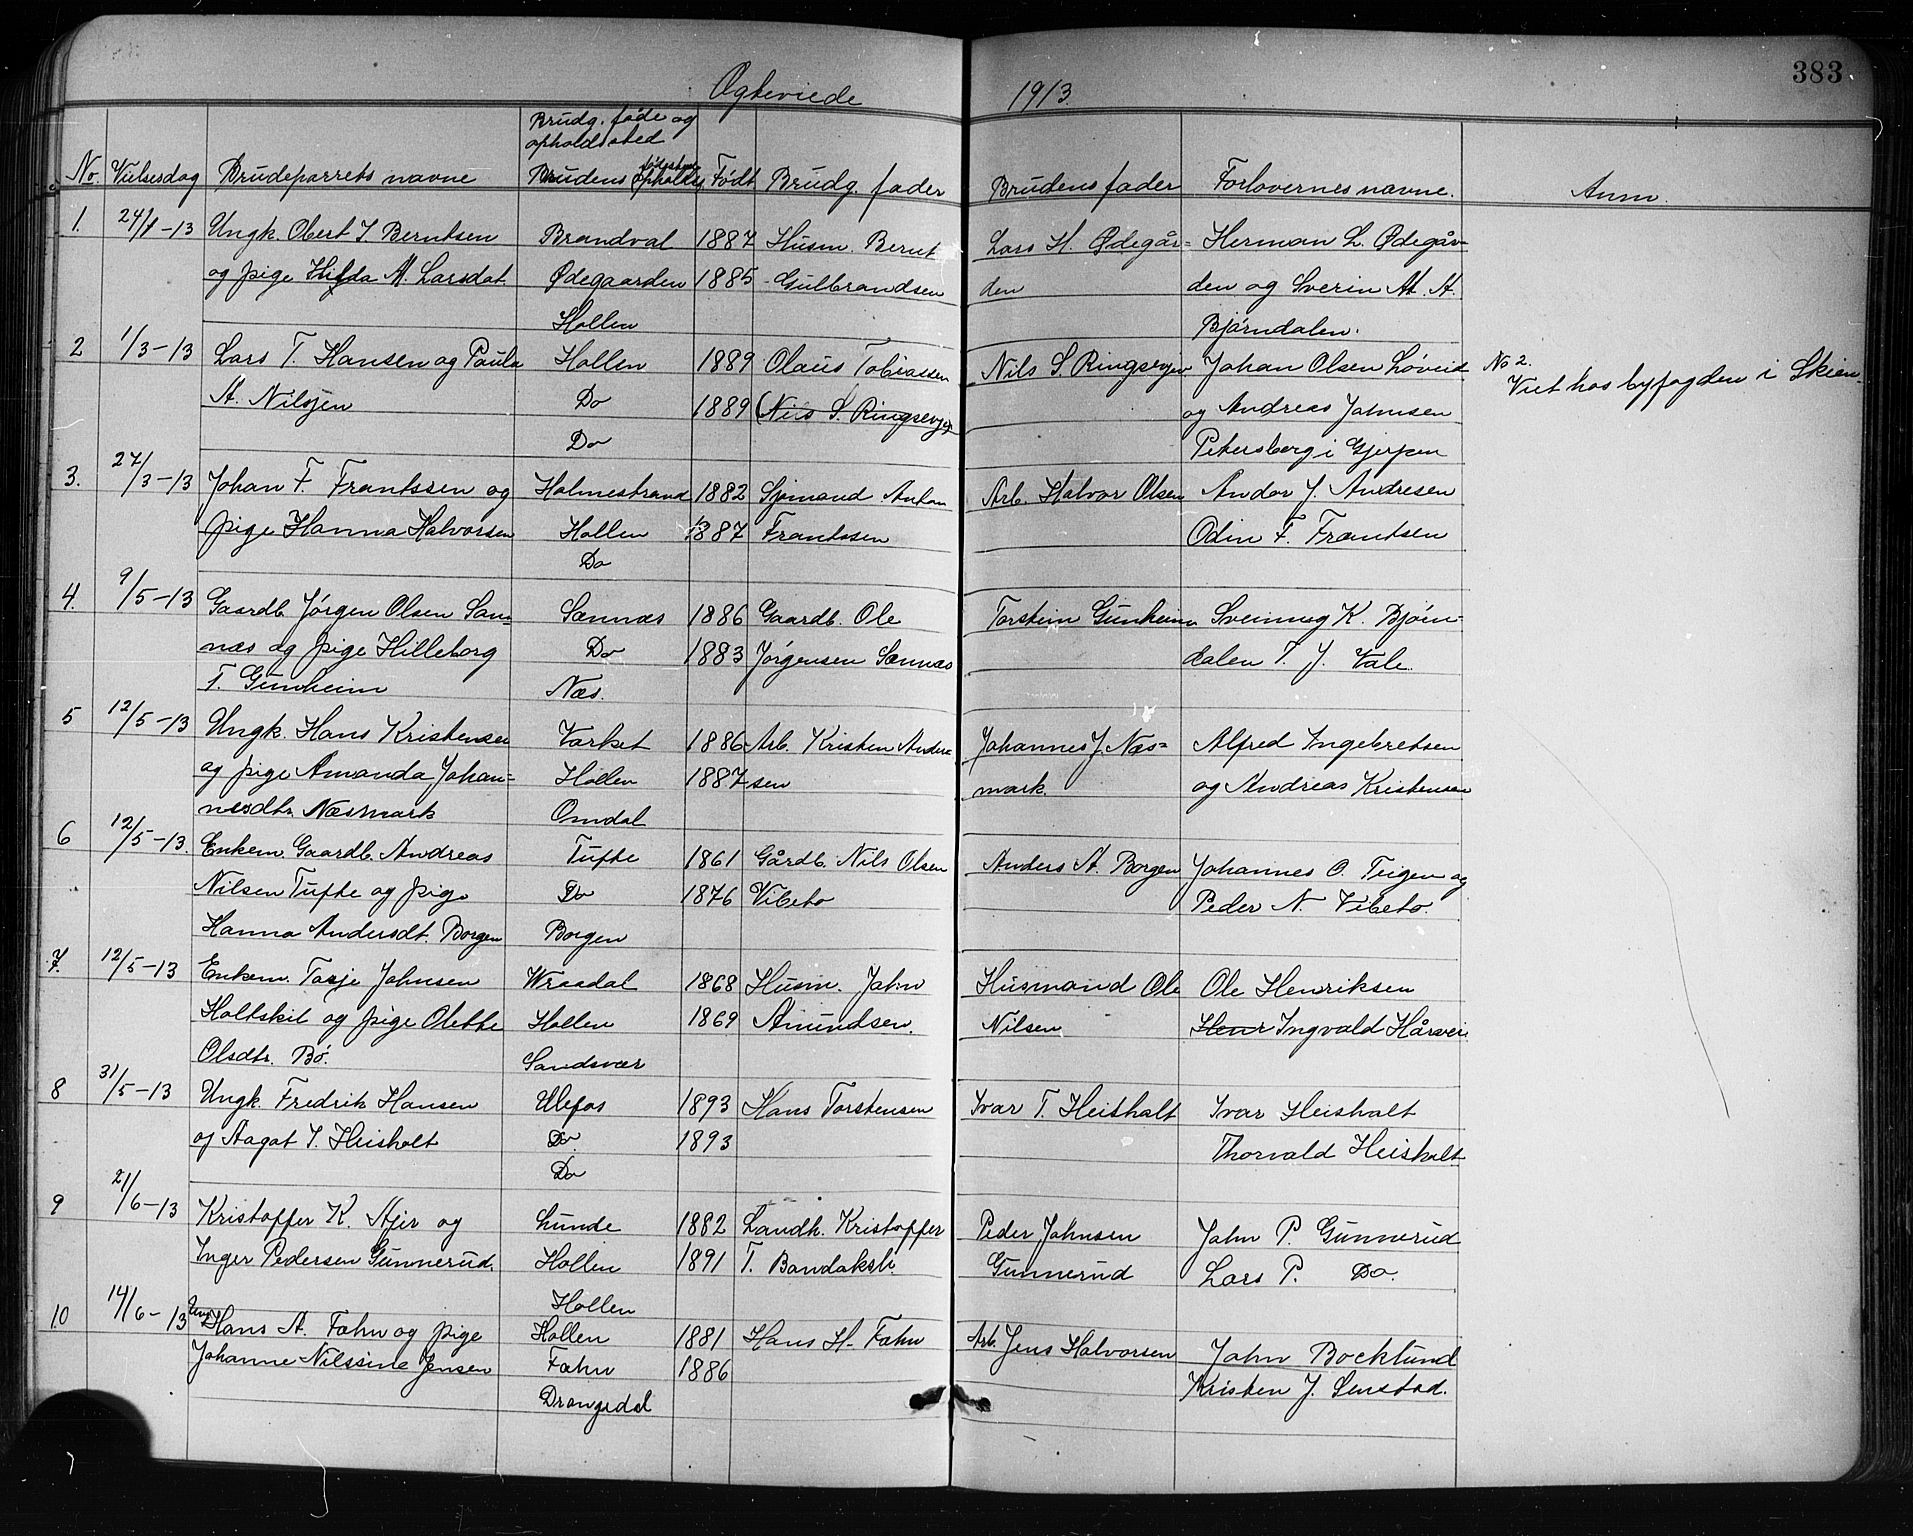 383
Ægteviede 1913.
No Vielsesdag Brudeparrets navne Brudg. føde og opholdssted Brudens fødested opholds Født Brudg. fader Brudens fader Forlovernes navne. Anm.
1. 24/1-13 Ungk. Obert I. Berntsen Brandval 1887 Husm. Bernt Lars H. Ødegår- Herman L. Ødegår-
og pige Hilda M. Larsdat. Ødegaarden 1885 Gulbrandsen den den og Sverin At. A.
Hollen Bjørndalen.
2 1/3-13 Lars T. Hansen og Paula Hollen 1889 Olaus Tobiassen Nils S. Ringsevjen Johan Olsen Løveid No 2.
A. Nilsen Do 1889 (Nils S. Ringsevjen og Andreas Johnsen Viet hos byfogden i Skien.
Do Petersborg i Gjerpen
3. 27/3-13 Johan F. Frantssen og Holmestrand 1882 Sjømand Anton Arb. Halvor Olsen Andor J. Andresen
pige Hanna Halvorsen Hollen 1887 Frantssen Odin F. Frantsen
Do
4. 9/5-13 Gaardb. Jørgen Olsen San- Sannæs 1886 Gaardb. Ole Torstein Gunheim Sveinung K. Bjørn-
næs og pige Hilleborg Do 1883 Jørgensen Sannæs dalen T. J. Vale.
T. Gunheim Næs.
5 12/5-13 Ungk. Hans Kristensen Varket 1886 Arb. Kristen Anders Johannes J. Næs- Alfred Ingebretsen
og pige Amanda Johan- Hollen 1887 sen mark. og Andreas Kristensen
nesdtr. Næsmark Omdal
6 12/5-13. Enkem. Gaardb. Andreas Tufte 1861 Gårdb. Nils Olsen Anders A. Borgen Johannes O. Teigen og
Nilsen Tufte og pige Do 1876 Vibeto Peder N. Vibeto.
Hanna Andersdt. Borgen Borgen
7. 12/5-13 Enkem. Tarje Johnsen Wraadal 1868 Husm. John Husmand Ole Ole Henriksen
Holtskil og pige Olette Hollen 1869 Amundsen. Nilsen Henr Ingvald Hårvei.
Olsdtr. Bø. Sandsvær
8 31/5-13 Ungk. Fredrik Hansen Ulefos 1893 Hans Torstensen Ivar T. Heisholt Ivar Heisholt
og Aagot I. Heisholt Do 1893 Thorvald Heisholt
Do
9 21/6-13 Kristoffer K. Ajer og Lunde 1882 Landh. Kristoffer Peder Johnsen John P. Gunnerud
Inger Pedersen Gunnerud. Hollen 1891 T. Bandaksli Gunnerud Lars P. Do.
Hollen
10 14/6-13 Ung. Hans A. Fahn og pige Hollen 1881 Hans H. Fahn Arb. Jens Halvorsen John Bocklund
Johanne Nilssine Jensen Fahn 1886 Kristen J. Senstad.
Drangedal